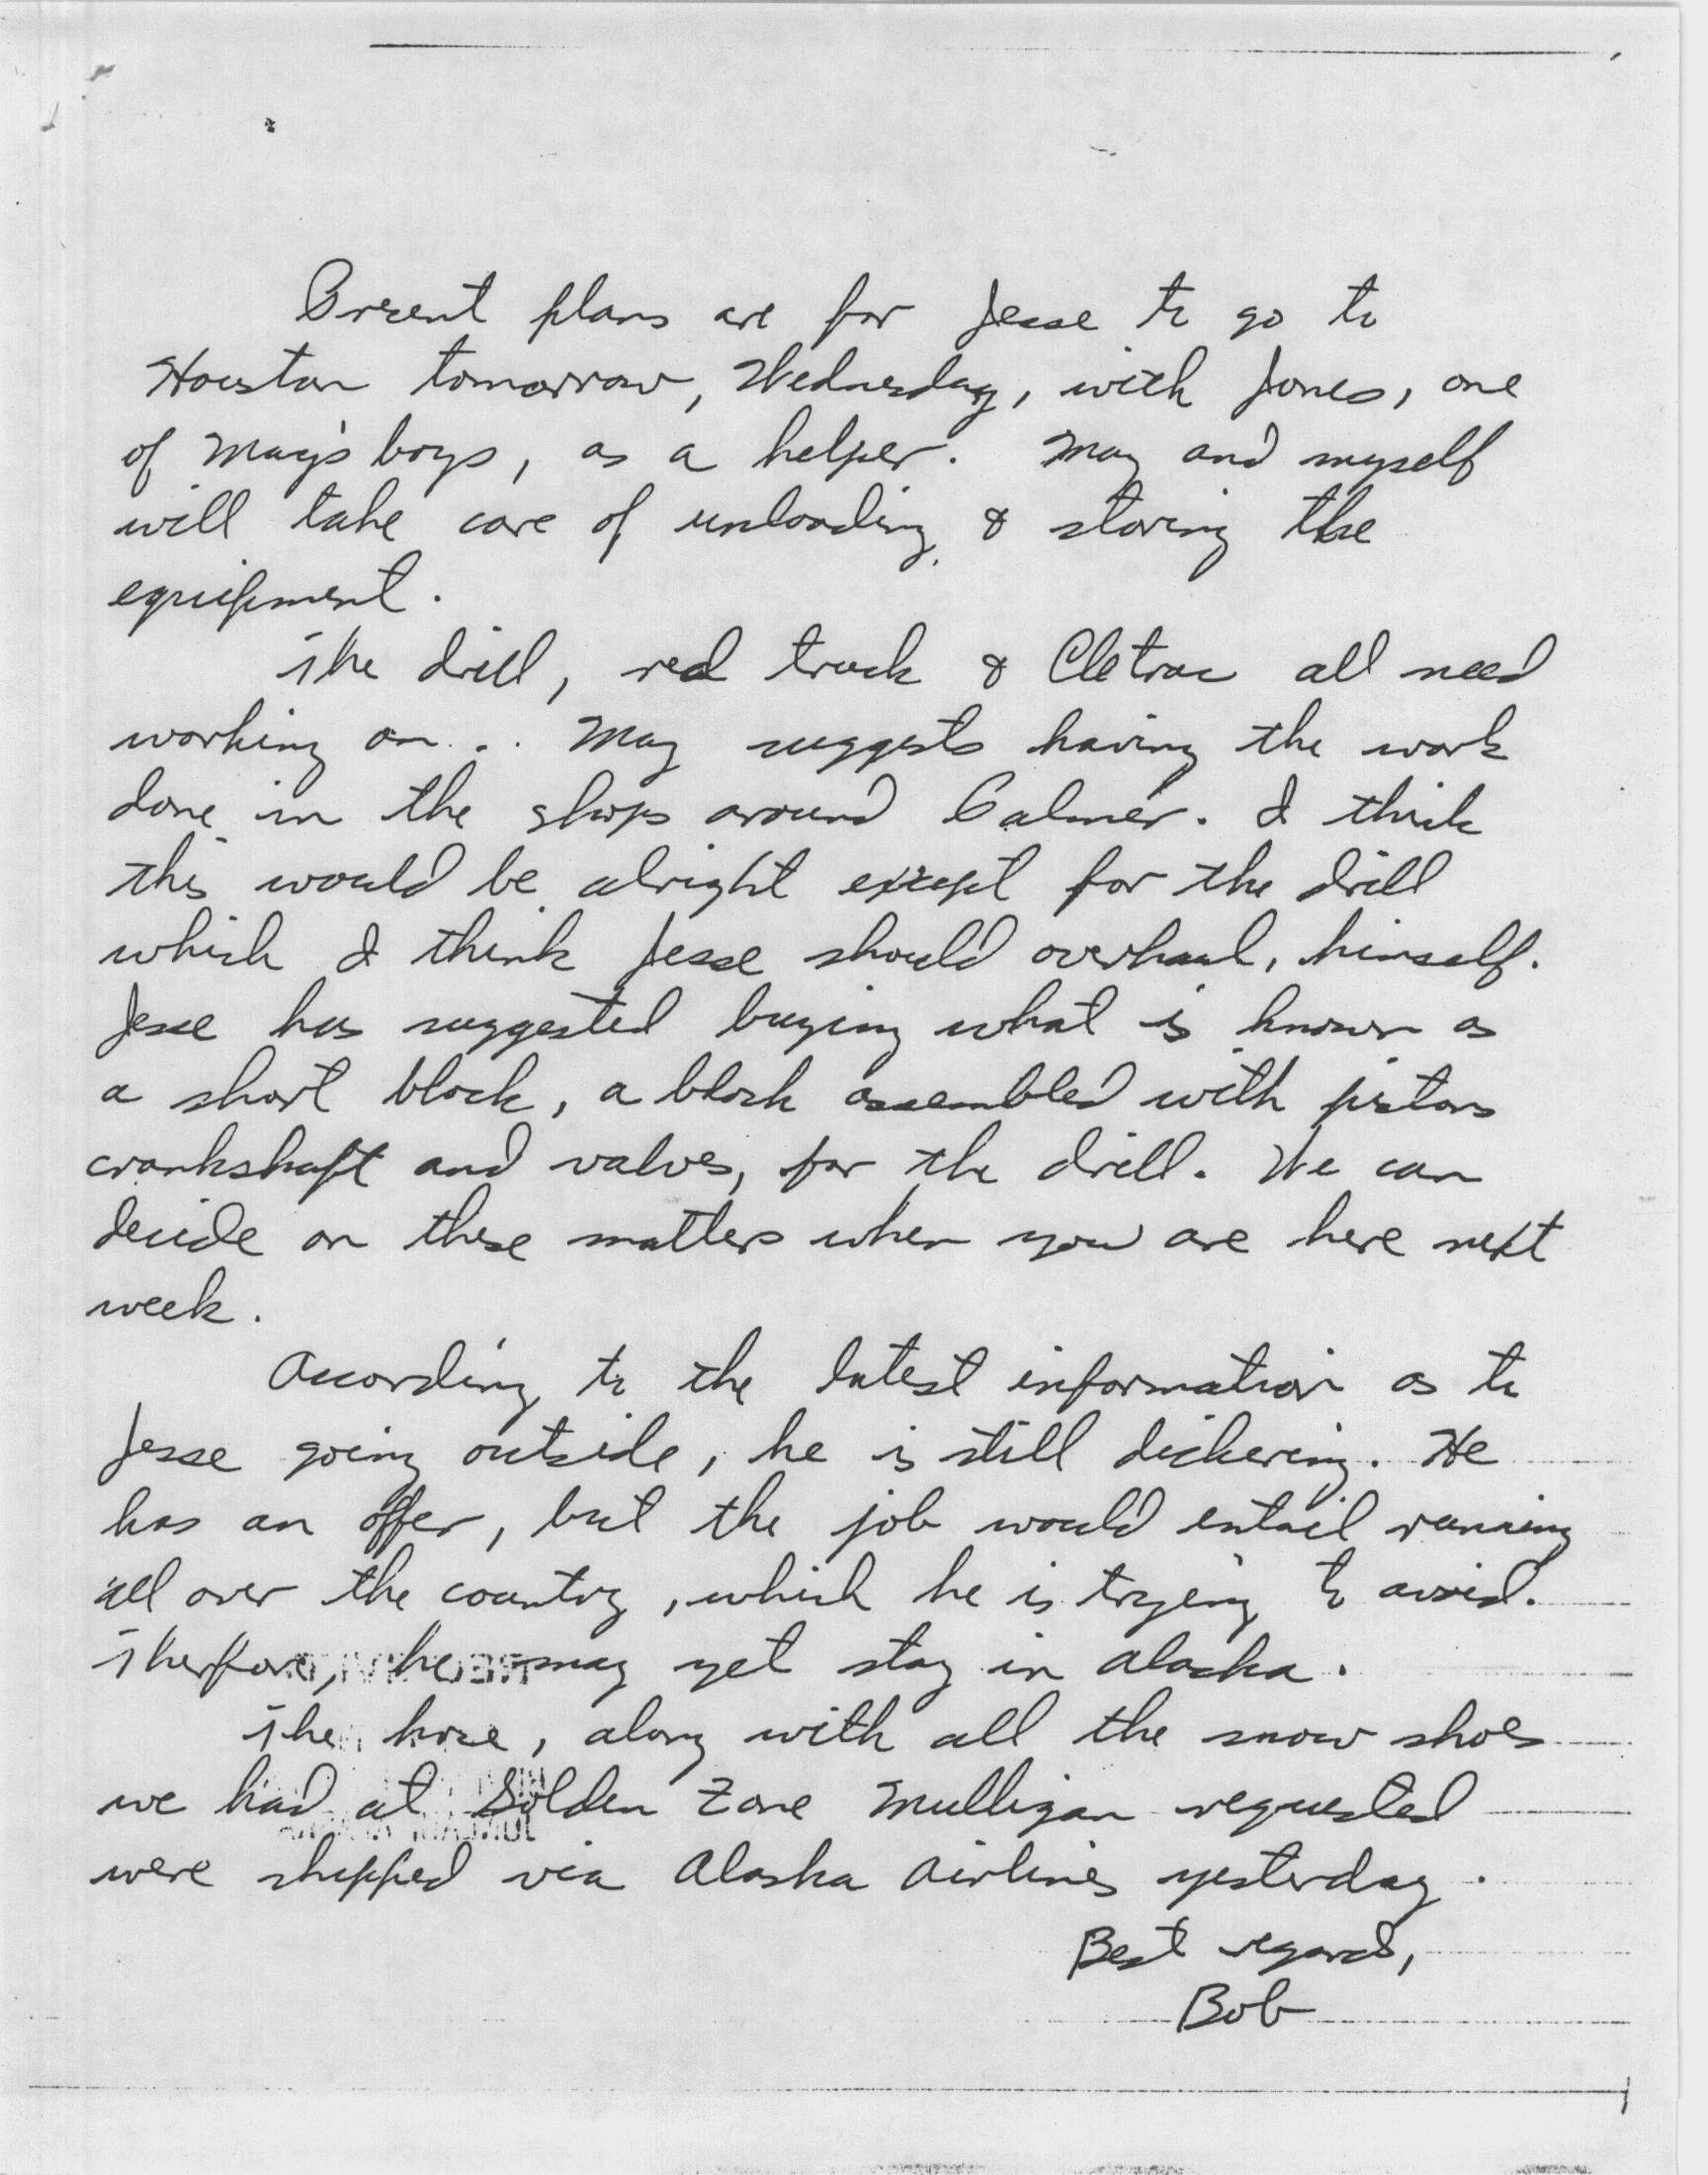 Present plans are for Jesse to go to
Houston tomorrow, Wednesday, with Jones, one
of May's boys, as a helper. May and myself
will take care of unloading & storing the
equipment.
The drill, red truck & Cletrac all need
working on... May suggests having the work
done in the shops around Palmer. I think
this would be alright except for the drill
which I think Jesse should overhaul, himself.
Jesse has suggested buying what is known as
a short block, a block assembled with pistons
crankshaft and valves, for the drill. We can
decide on these matters when you are here next
week.
According to the latest information as to
Jesse going outside, he is still dickering. He
has an offer, but the job would entail running
all over the country, which he is trying to avoid.
Therfore, he may yet stay in Alaska.
The hose, along with all the snow shoes
we had at Golden Zone Mulligan requested
were shipped via Alaska Airlines yesterday.
Best regards,
Bob